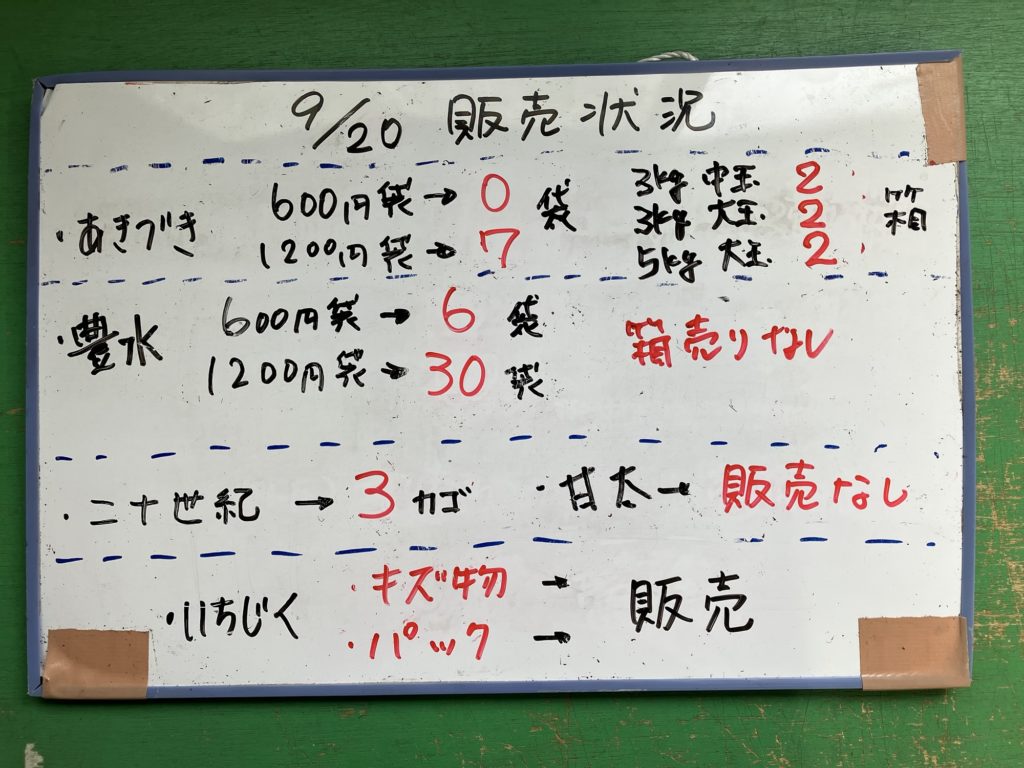 9/20 販売状況
・あきづき 600円袋→0袋 3kg 中玉 2箱
1200円袋→7 3kg 大玉 2
5kg 大玉 2
・豊水 600円袋→6袋 箱売りなし
1200円袋→30袋
・二十世紀→3カゴ ・甘太→販売なし
・いちじく ・キズ物→販売
・パック→